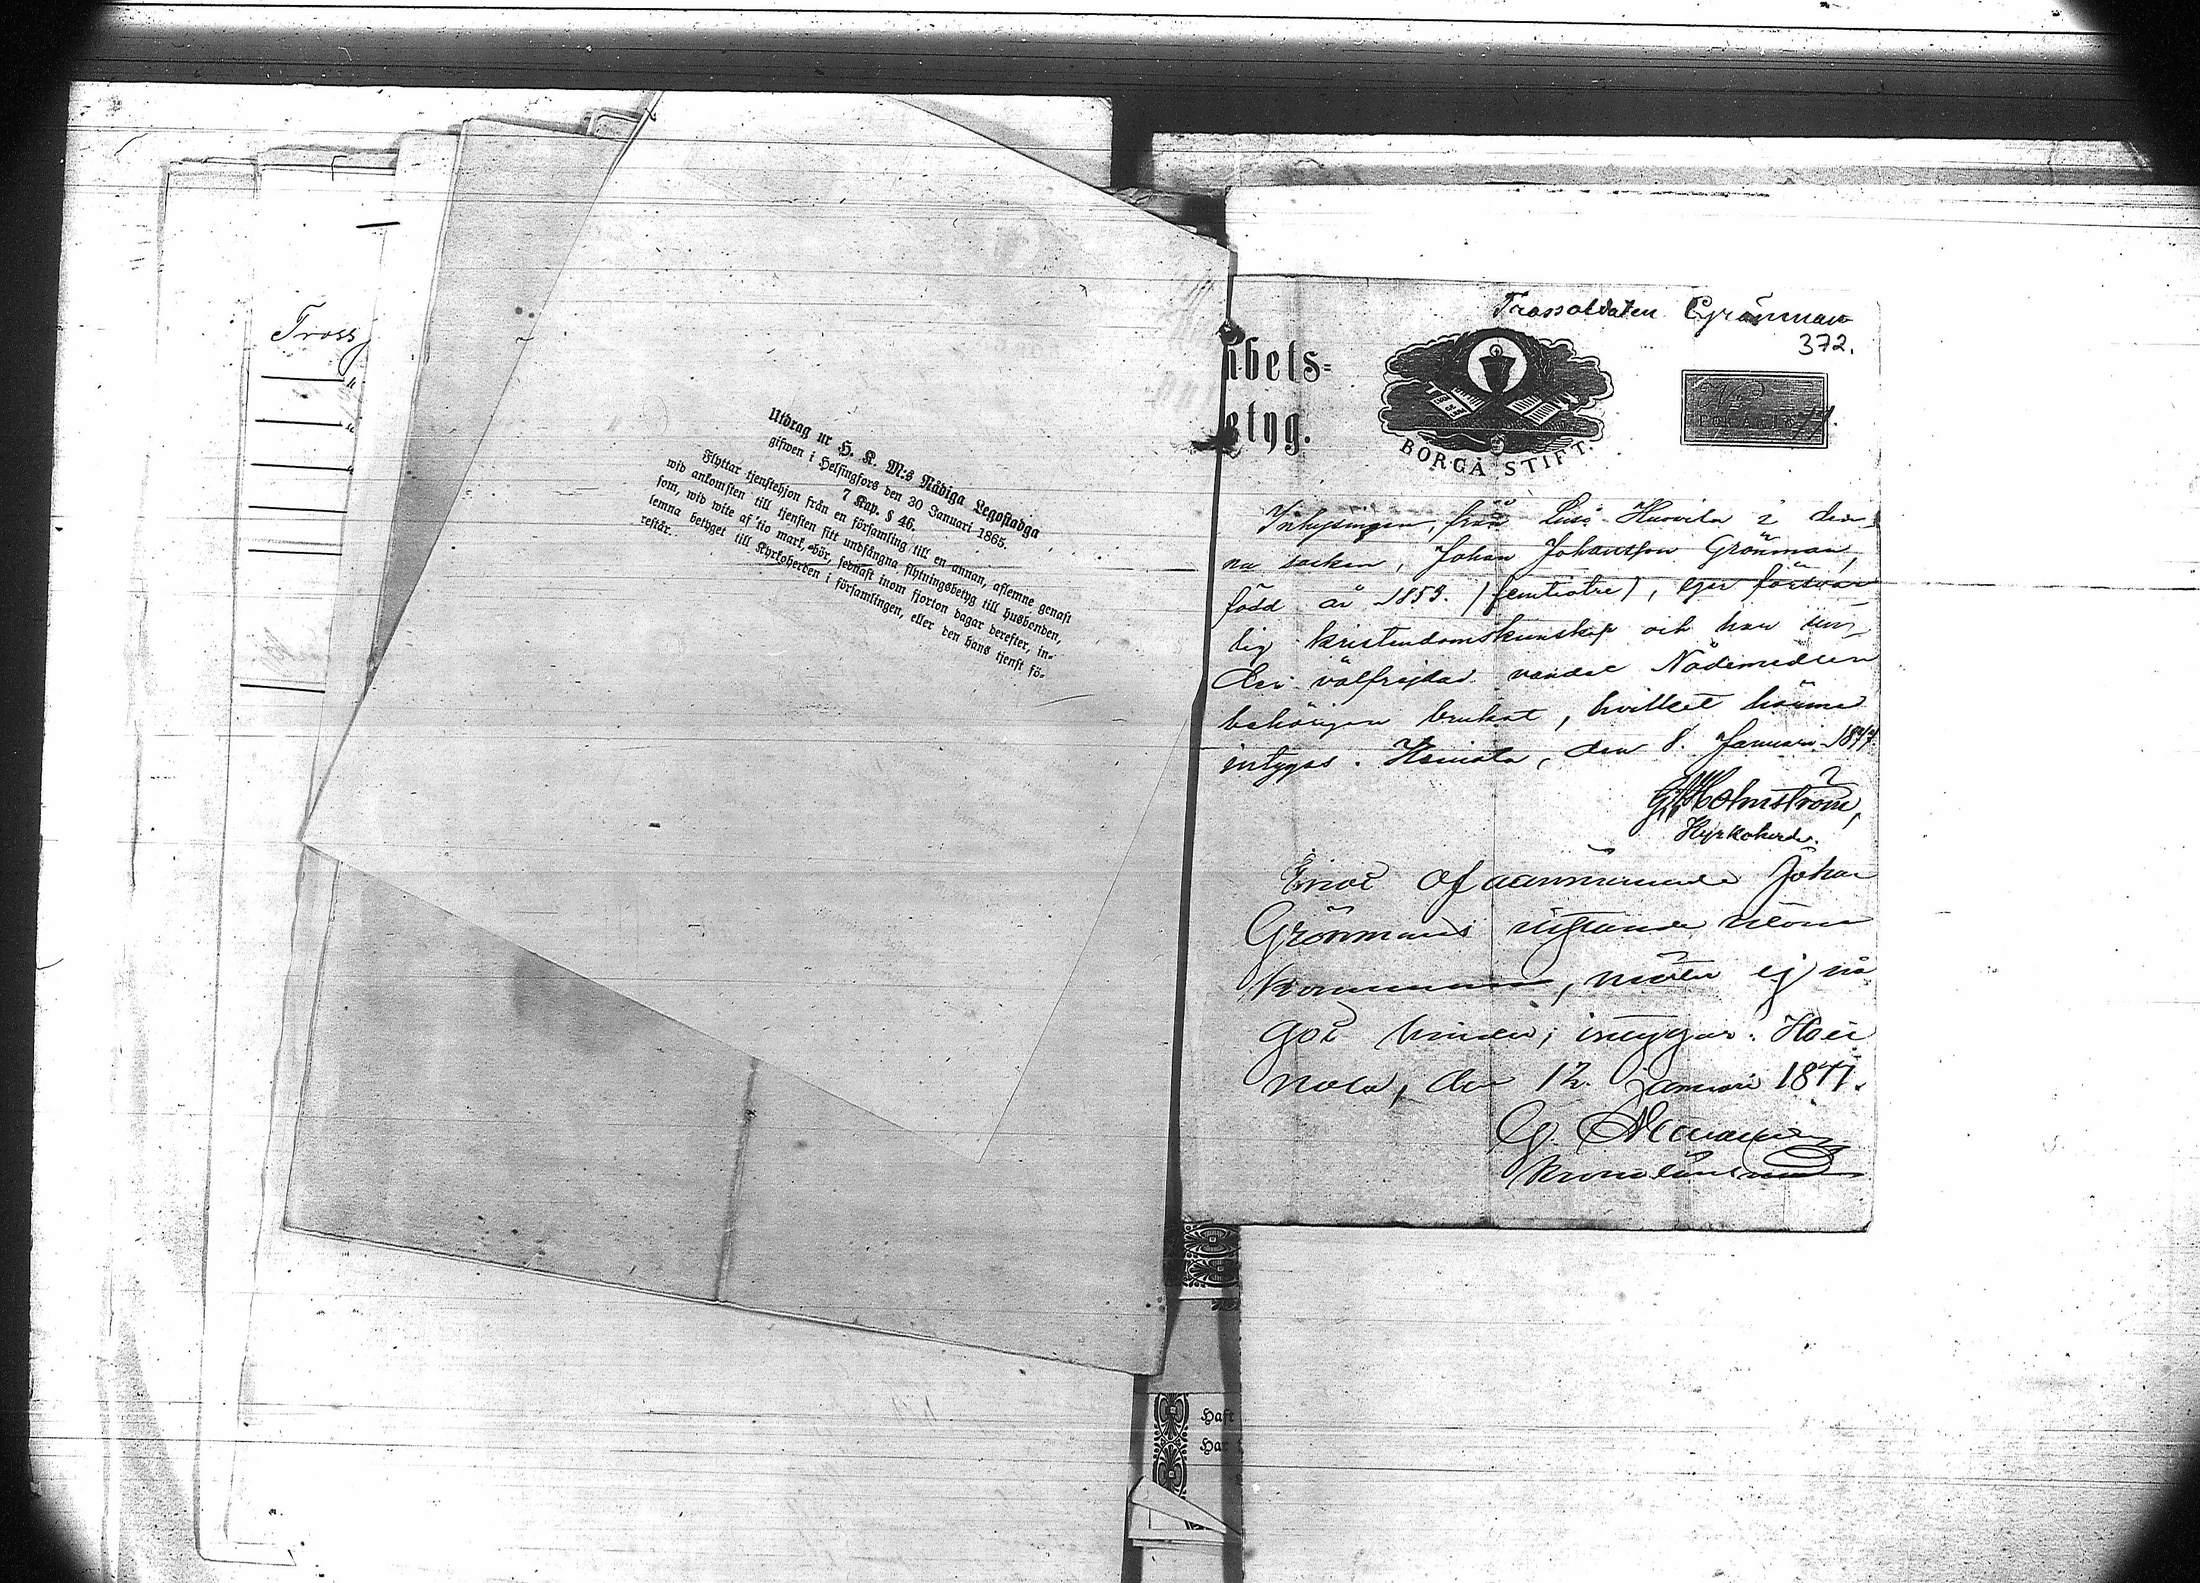 Tross
Utdrag ur H. K. M:s Nådiga Legostadga
gifwen i Helsingfors den 30 Januari 1865.
7 Kap. § 46.
Flyttar tjenstehjon från en församling till en annan, aflemne genast
wid ankomsten till tjensten sitt undfångna flytningsbetyg till husbonden,
som, wid wite af tio mark, bör, sednast inom fjorton dagar derefter, in-
lemna betyget till Kyrkoherden i församlingen, eller den hans tjenst fö-
restår.
Trossoldaten Grönman
372.
bets-
etyg.
BORGÅ STIFT.
N:o
FÖR ÅR 18
Inhysingen, från Lusi Hurvila i den
na socken, Johan Johansson Grönman,
född år 1853. (femtiotre), eger försvar
lig kristendomskunskap och har un
der välfrejdad vandel Nådemedlen
behörigen brukat, hvilket härmed
intygas. Heinola, den 8. Januari 1877
Holmström,
Kyrkoherde.
Emot ofvannämnde Johan
Grönmans utom
kommunen, möter ej nå
got hinder; intygar. Hei
nola, den 12. januari 1877.
G.
Kronolänsman
Haft
Har